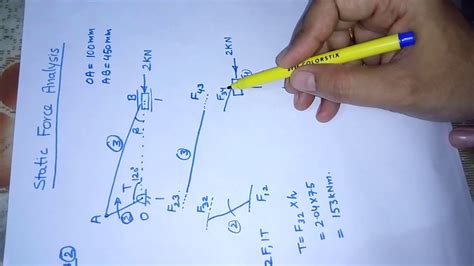 Static Force Analysis
OA = 100mm
AB = 450mm
2KN
B
1
β
3
T
120°
A
2
O
1
F43
3
F23
2KN
F34
4
F32
2
F12
2F, 1T
T = F32 × h
= 2.04×75
= 153 KNm.
2
COLORSTIX